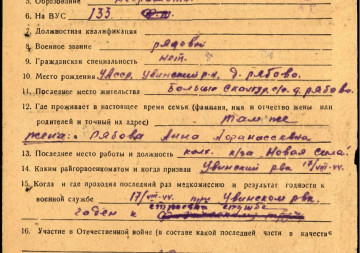 5. Образование
6. На ВУС 133
7. Должностная квалификация
8. Военное звание рядовой
9. Гражданская специальность нет.
10. Место рождения УАССР, Увинский р-н, д. Рябово.
11. Последнее место жительства Больше с/с д. Рябово.
12. Где проживает в настоящее время семья (фамилия, имя и отчество жены или
родителей и точный их адрес) там же
жена: Рябова Анна Афанасьевна
13. Последнее место работы и должность колх. к/за "Новая Сила"
14. Каким райгорвоенкоматом и когда призван Увинский рвк 17/VII-44.
15. Когда и где проходил последний раз медкомиссию и результат годности к
военной службе 17/VII-44. при Увинском рвк
годен к строевой службе
16. Участие в Отечественной войне (в составе какой последней части, в качестве